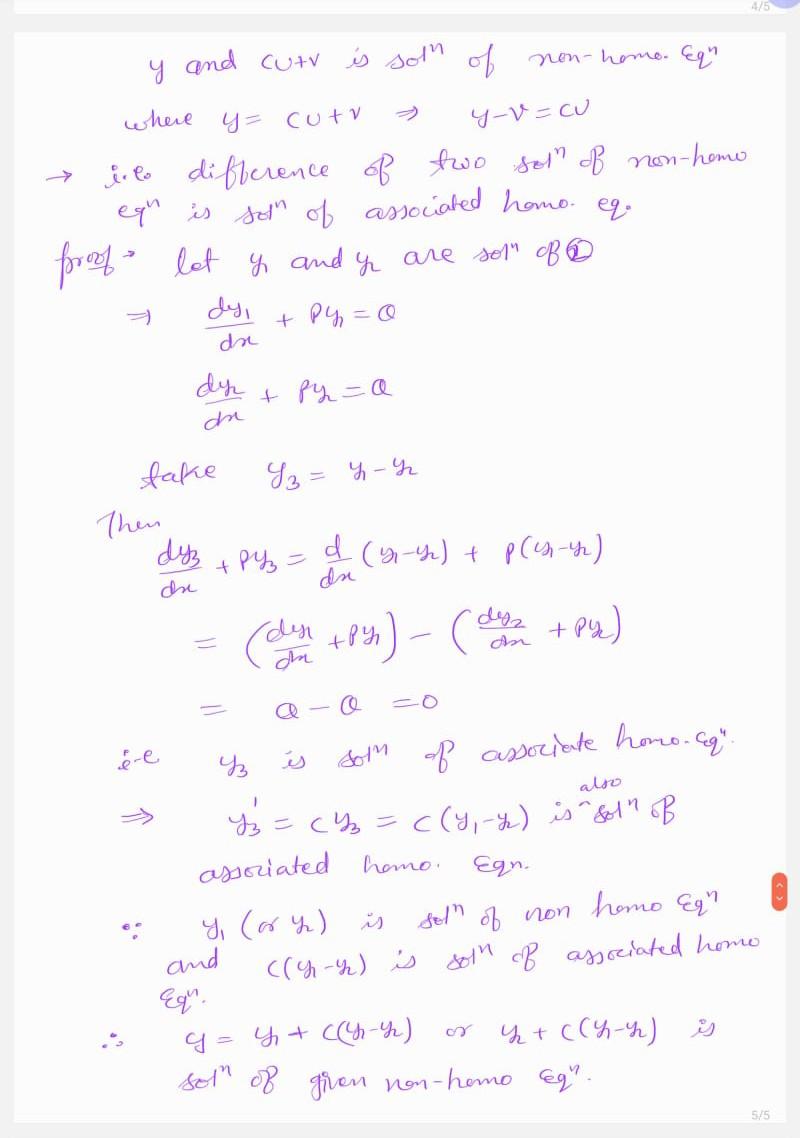 4/5
y and cu+v is solⁿ of non-homo. Eqⁿ
where y = cu+v ⇒ y-v = cu
→ i.e. difference of two solⁿ of non-homo
eqⁿ is solⁿ of associated homo. eq.
proof → let y₁ and y₂ are solⁿ of ②
⇒ dy₁/dx + Py₁ = Q
dy₂/dx + Py₂ = Q
take y₃ = y₁-y₂
Then
dy₃/dx + Py₃ = d/dx (y₁-y₂) + P(y₁-y₂)
= (dy₁/dx + Py₁) - (dy₂/dx + Py₂)
= Q - Q = 0
i-e y₃ is solⁿ of associate homo. Eqⁿ.
also
⇒ y₃' = cy₃ = c(y₁-y₂) is ^ solⁿ of
associated homo. Eqn.
∵ y₁ (or y₂) is solⁿ of non homo Eqⁿ
and c(y₁-y₂) is solⁿ of associated homo
Eqⁿ.
∴ y = y₁ + c(y₁-y₂) or y₂ + c(y₁-y₂) is
solⁿ of given non-homo Eqⁿ.
5/5